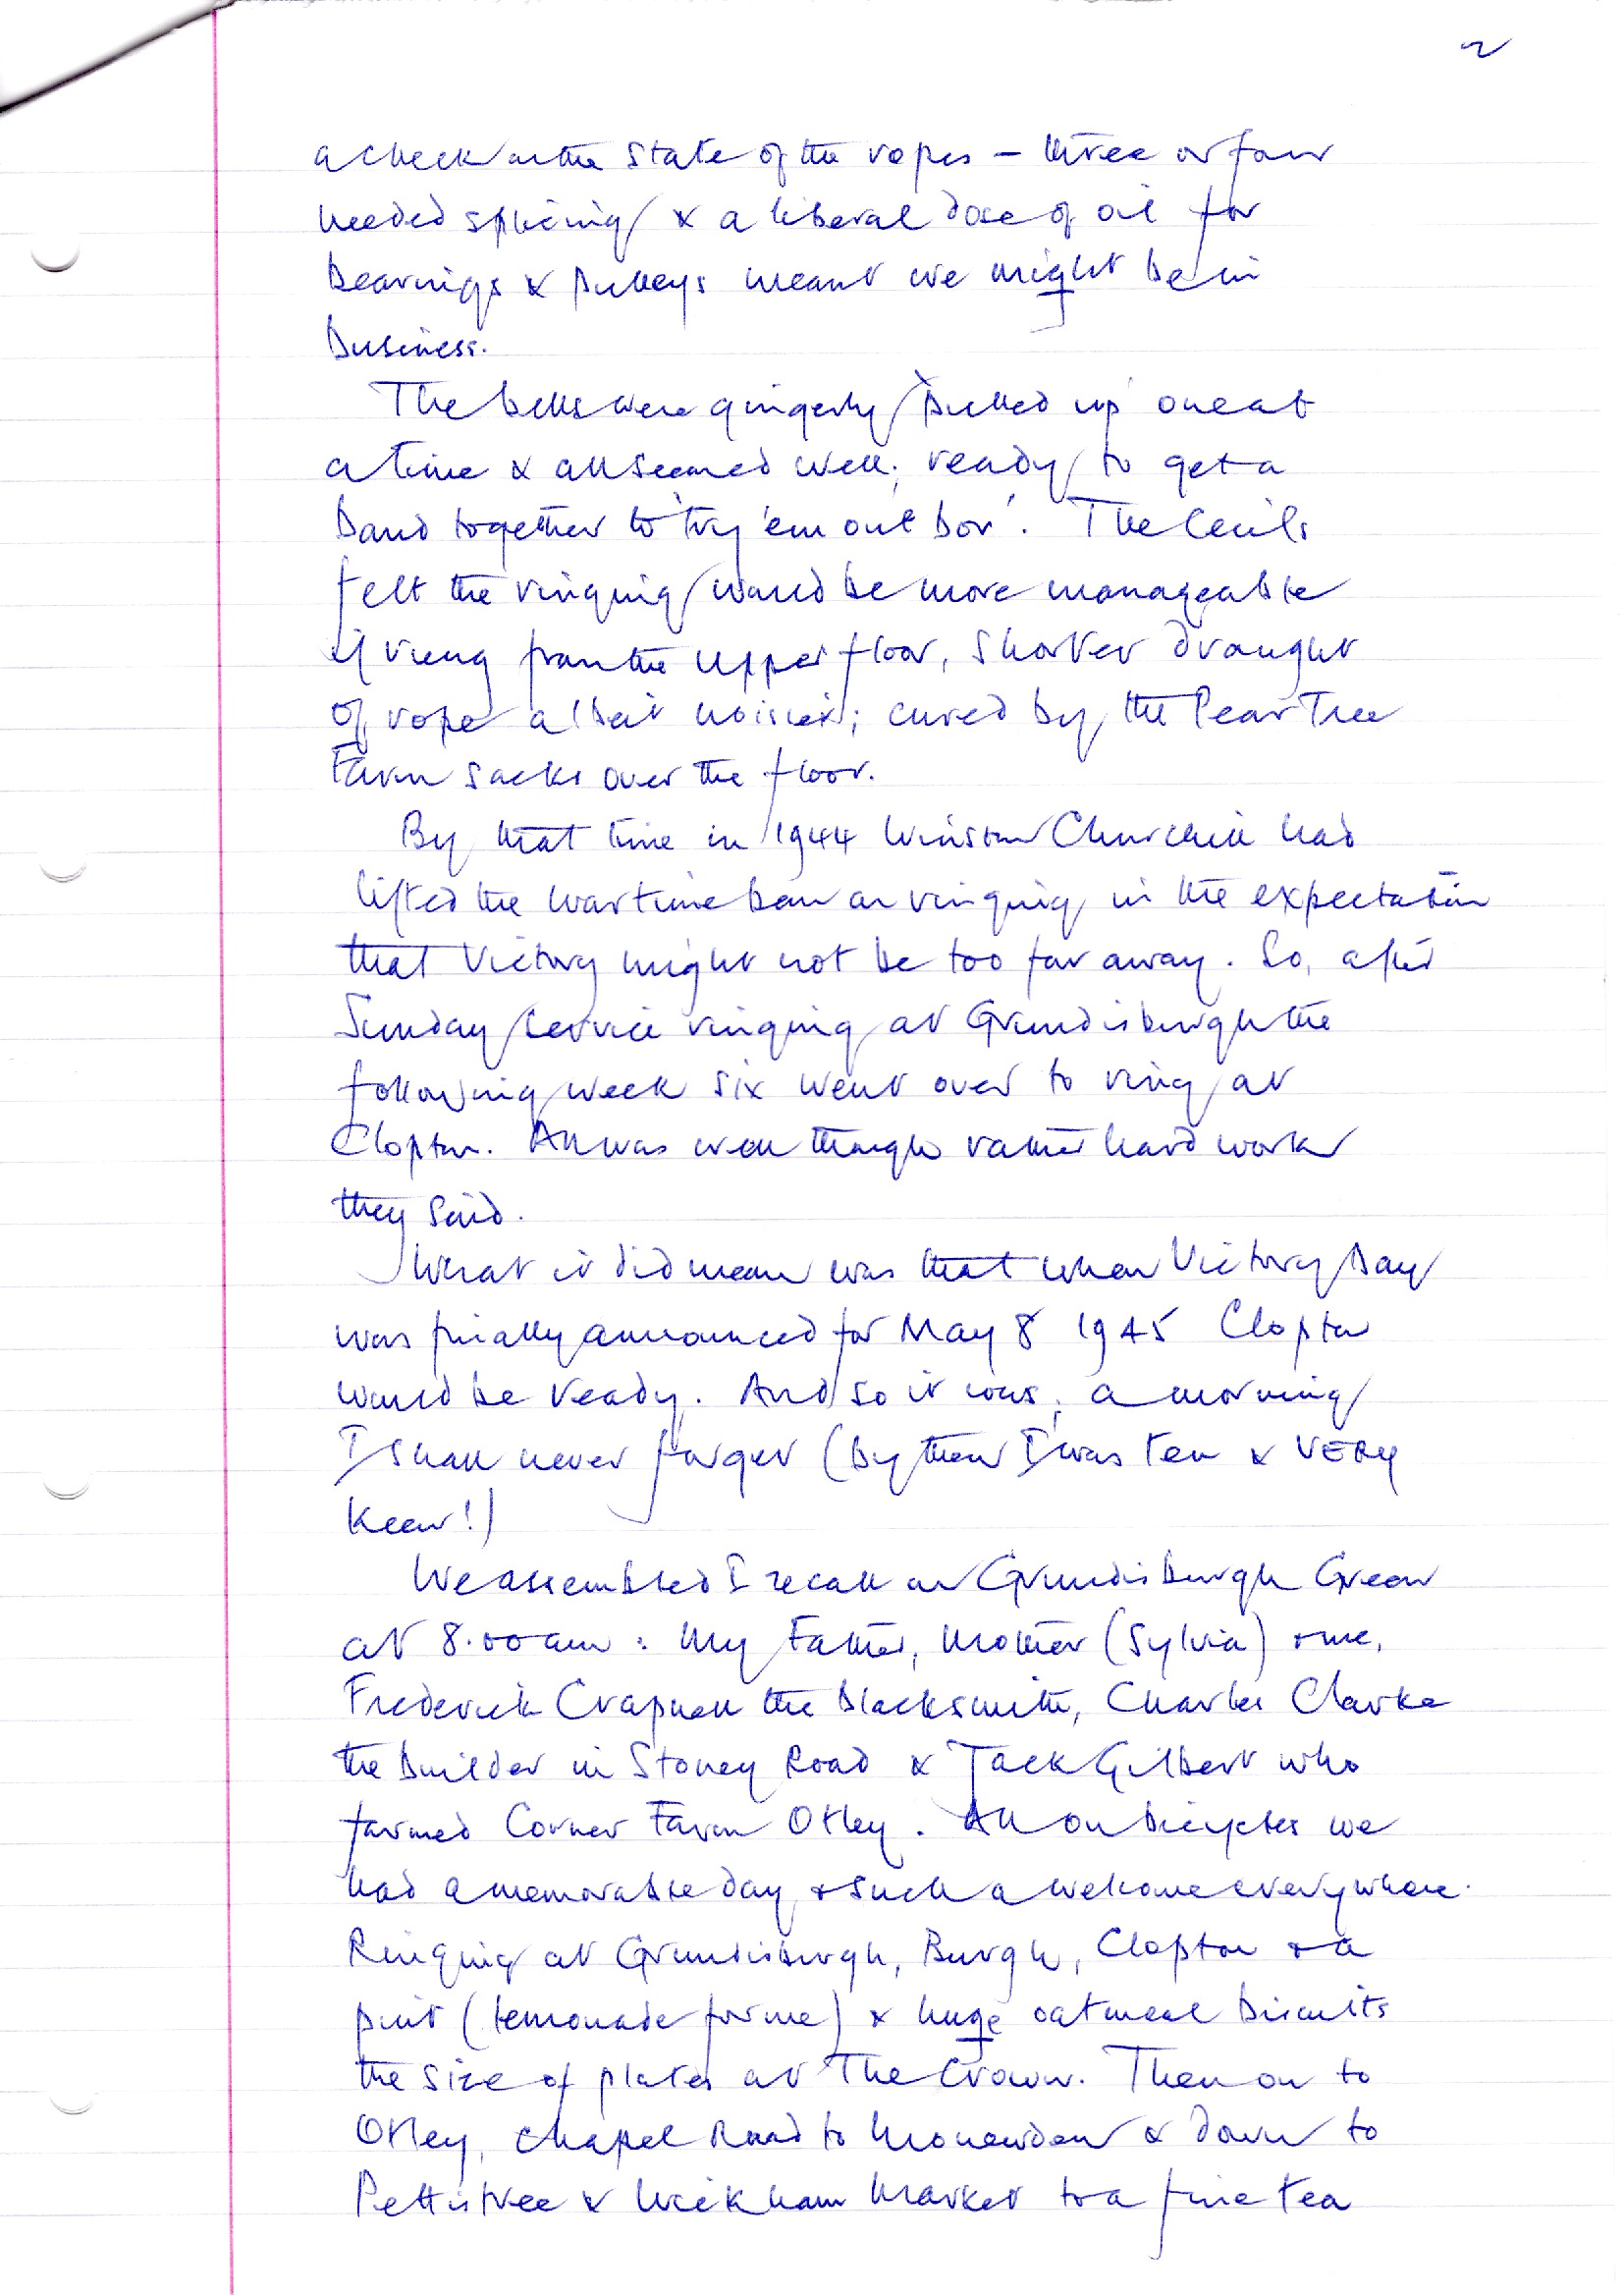 2
a check on the state of the ropes – three or four
needed splicing & a liberal dose of oil for
bearings & pulleys meant we might be in
business.
The bells were gingerly 'pulled up' one at
a time & all seemed well; ready to get a
band together to 'try 'em out bor'. The Cecils
felt the ringing would be more manageable
if rung from the upper floor, shorter draught
of rope albeit noisier; cured by the Pear Tree
Farm sacks over the floor.
By that time in 1944 Winston Churchill had
lifted the wartime ban on ringing in the expectation
that Victory might not be too far away. So, after
Sunday service ringing at Grundisburgh the
following week six went over to ring at
Clopton. All was well though rather hard work
they said.
What it did mean was that when Victory Day
was finally announced for May 8 1945 Clopton
would be ready. And so it was; a morning
I shall never forget (by then I was ten & VERY
keen!)
We assembled I recall on Grundisburgh Green
at 8.00am: My Father, Mother (Sylvia) & me,
Frederick Crapnell the blacksmith, Charles Clarke
the builder in Stoney Road & Jack Gilbert who
farmed Corner Farm Otley. All on bicycles we
had a memorable day & such a welcome everywhere.
Ringing at Grundisburgh, Burgh, Clopton & a
pint (lemonade for me) & huge oatmeal biscuits
the size of plates at The Crown. Then on to
Otley, Chapel Road to Monewden & down to
Pettistree & Wickham Market to a fine tea